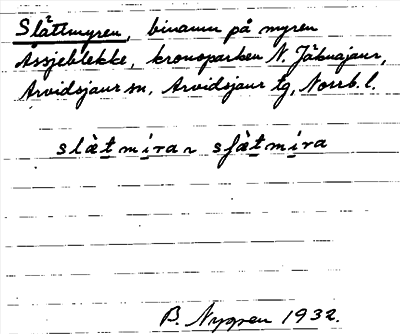 Slåttmyren, binamn på myren
Assjeblekke, kronoparken N. Jäknajaur,
Arvidsjaur sn, Arvidsjaur tg, Norrb. l.
B. Nygren 1932.